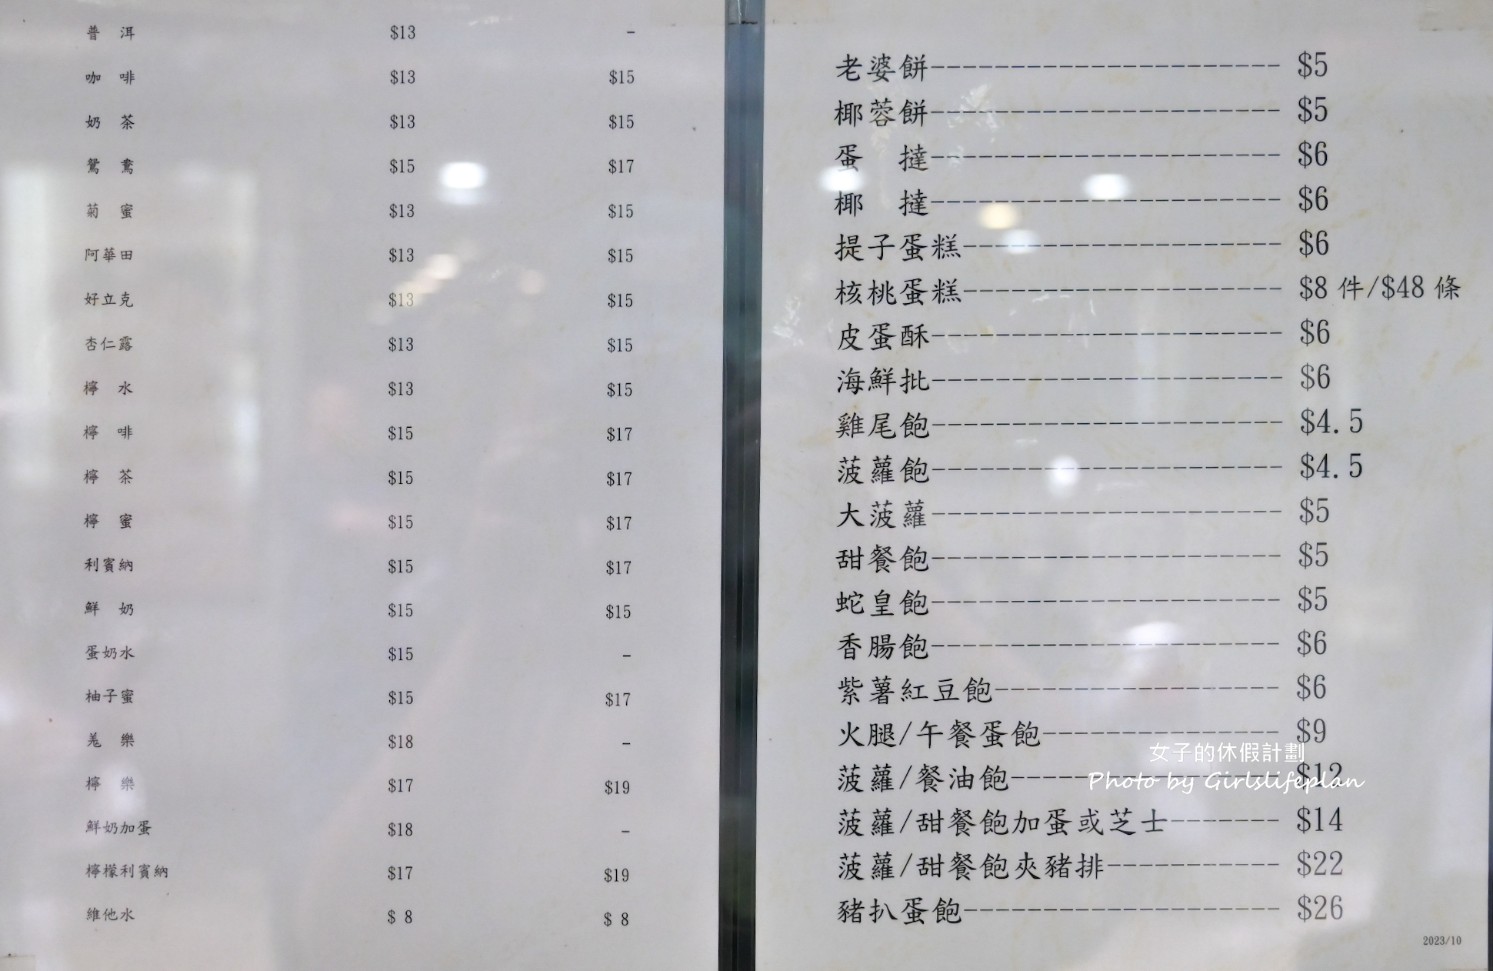 普 洱 $13 －
咖 啡 $13 $15
奶 茶 $13 $15
鴛 鴦 $15 $17
菊 蜜 $13 $15
阿華田 $13 $15
好立克 $13 $15
杏仁露 $13 $15
檸 水 $13 $15
檸 啡 $15 $17
檸 茶 $15 $17
檸 蜜 $15 $17
利賓納 $15 $17
鮮 奶 $15 $15
蛋奶水 $15 －
柚子蜜 $15 $17
羗 樂 $18 －
檸 樂 $17 $19
鮮奶加蛋 $18 －
檸檬利賓納 $17 $19
維他水 $ 8 $ 8
老婆餅---------------------- $5
椰蓉餅---------------------- $5
蛋 撻---------------------- $6
椰 撻---------------------- $6
提子蛋糕-------------------- $6
核桃蛋糕-------------------- $8 件/$48 條
皮蛋酥---------------------- $6
海鮮批---------------------- $6
雞尾飽---------------------- $4.5
菠蘿飽---------------------- $4.5
大菠蘿---------------------- $5
甜餐飽---------------------- $5
蛇皇飽---------------------- $5
香腸飽---------------------- $6
紫薯紅豆飽------------------ $6
火腿/午餐蛋飽--------------- $9
女子的休假計劃
菠蘿/餐油飽----------------- $12
Photo by Girlslifeplan
菠蘿/甜餐飽加蛋或芝士------- $14
菠蘿/甜餐飽夾豬排----------- $22
豬扒蛋飽-------------------- $26
2023/10